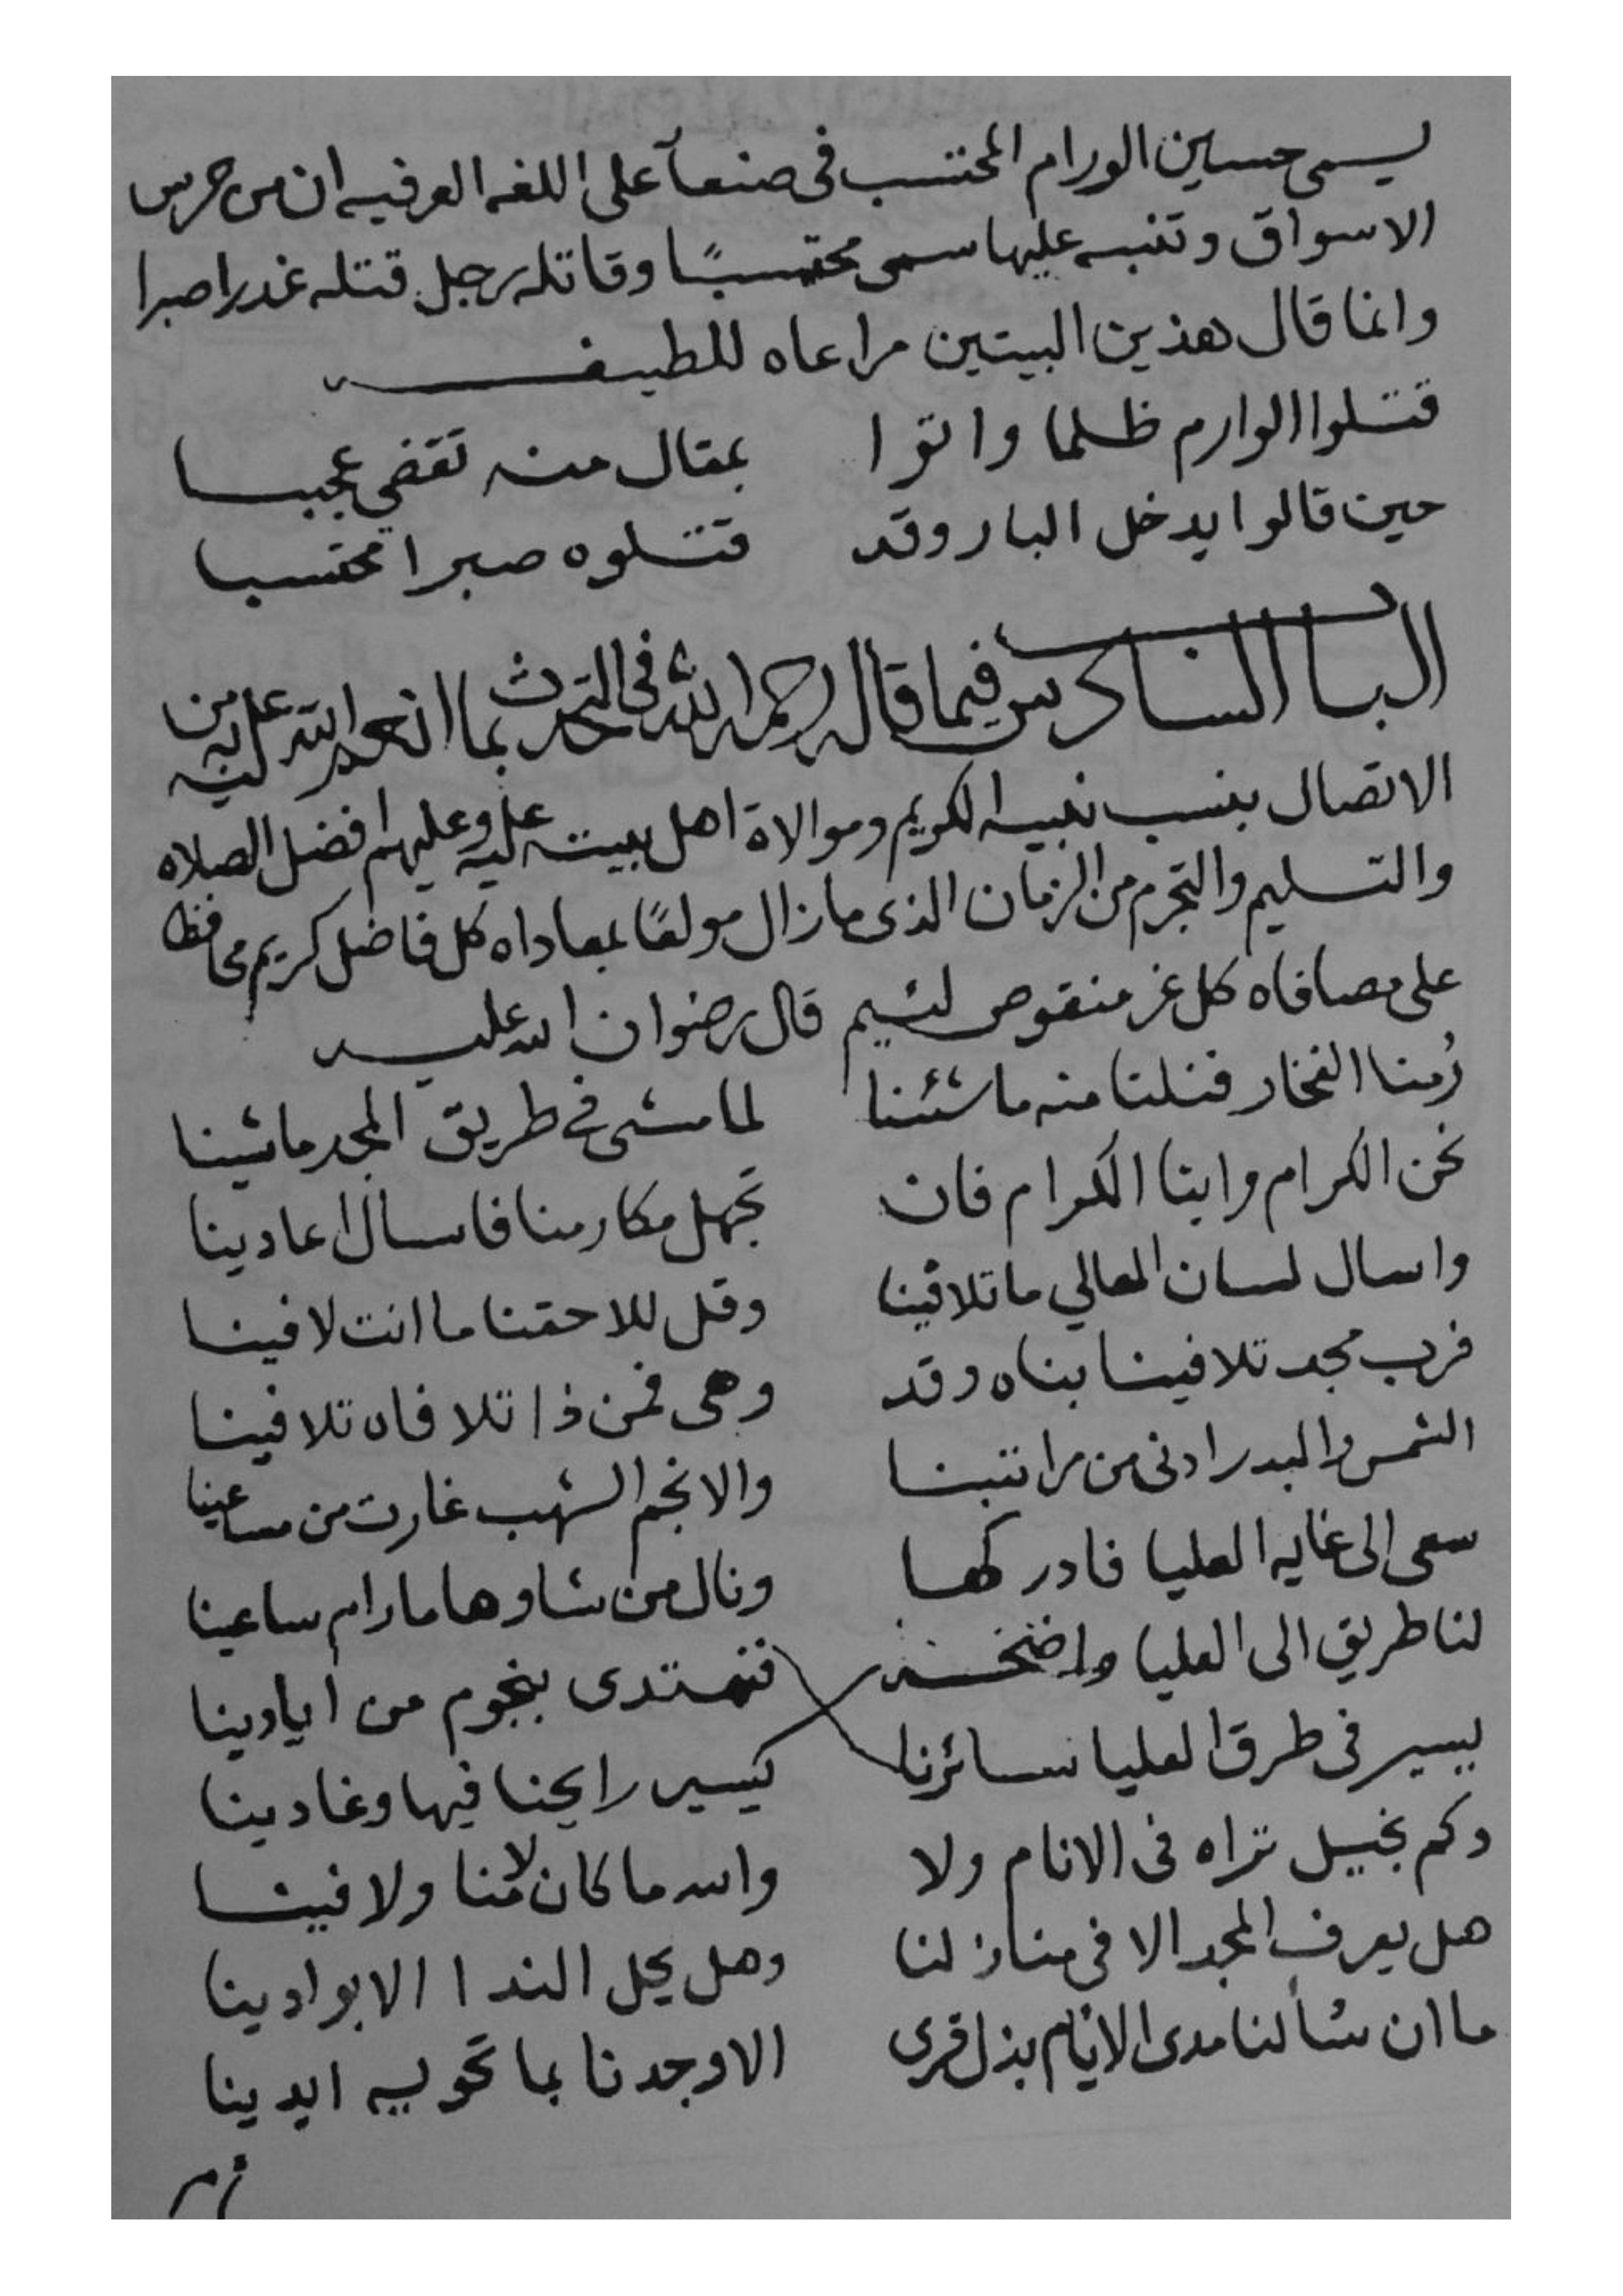 يسمى حسين الورام المحتسب فى صنعآ على اللغه العرفيه ان من حرس
الاسواق وتنبه عليها سمى محتسبًا وقاتله رجل قتله غدرا صبرا
وانما قال هذين البيتين مراعاه للطيفه
قتلوا الوارم ظلما واتوا بمقال منه تقضي عجبا
حين قالوا يدخل البار وقد قتلوه صبرا محتسبا
الباب السادس فيما قاله رحمه الله فى التحدث بما انعم الله عليه من
الاتصال بنسب نبيه الكريم وموالاة اهل بيته عليه وعليهم افضل الصلاه
والتسليم والتجرم من الزمان الذى مازال مولعًا بمعاداه كل فاضل كريم محافظا
على مصافاه كل غر منقوص لئيم قال رضوان الله عليه
رُمنا الفخار فنلنا منه ماشئنا لما مشى في طريق المجد ماشينا
نحن الكرام وابنا الكرام فان تجهل مكارمنا فاسال اعادينا
واسال لسان المعالي ماتلاقينا وقل للاحقنا ما انت لاقينا
فرب مجد تلافينا بناه وقد وهى فمن ذا تلافاه تلافينا
الشمس والبدر ادنى من مراتبنا والانجم الشهب غارت من مساعينا
سعى الى غايه العليا فادركها ونال من شاوها مارام ساعينا
لنا طريق الى العليا واضحة فنهتدى بنجوم من ايادينا
يسير فى طرق العليا سائرنا كيسير رايحنا فيها وغادينا
وكم بخيل تراه فى الانام ولا والله ما كان لا منا ولا فينا
هل يعرف المجد الا فى منازلنا وهل يحل الندا الا بوادينا
ما ان شألنا مدى الايام بذل قرى الا وجدنا بما تحويه ايدينا